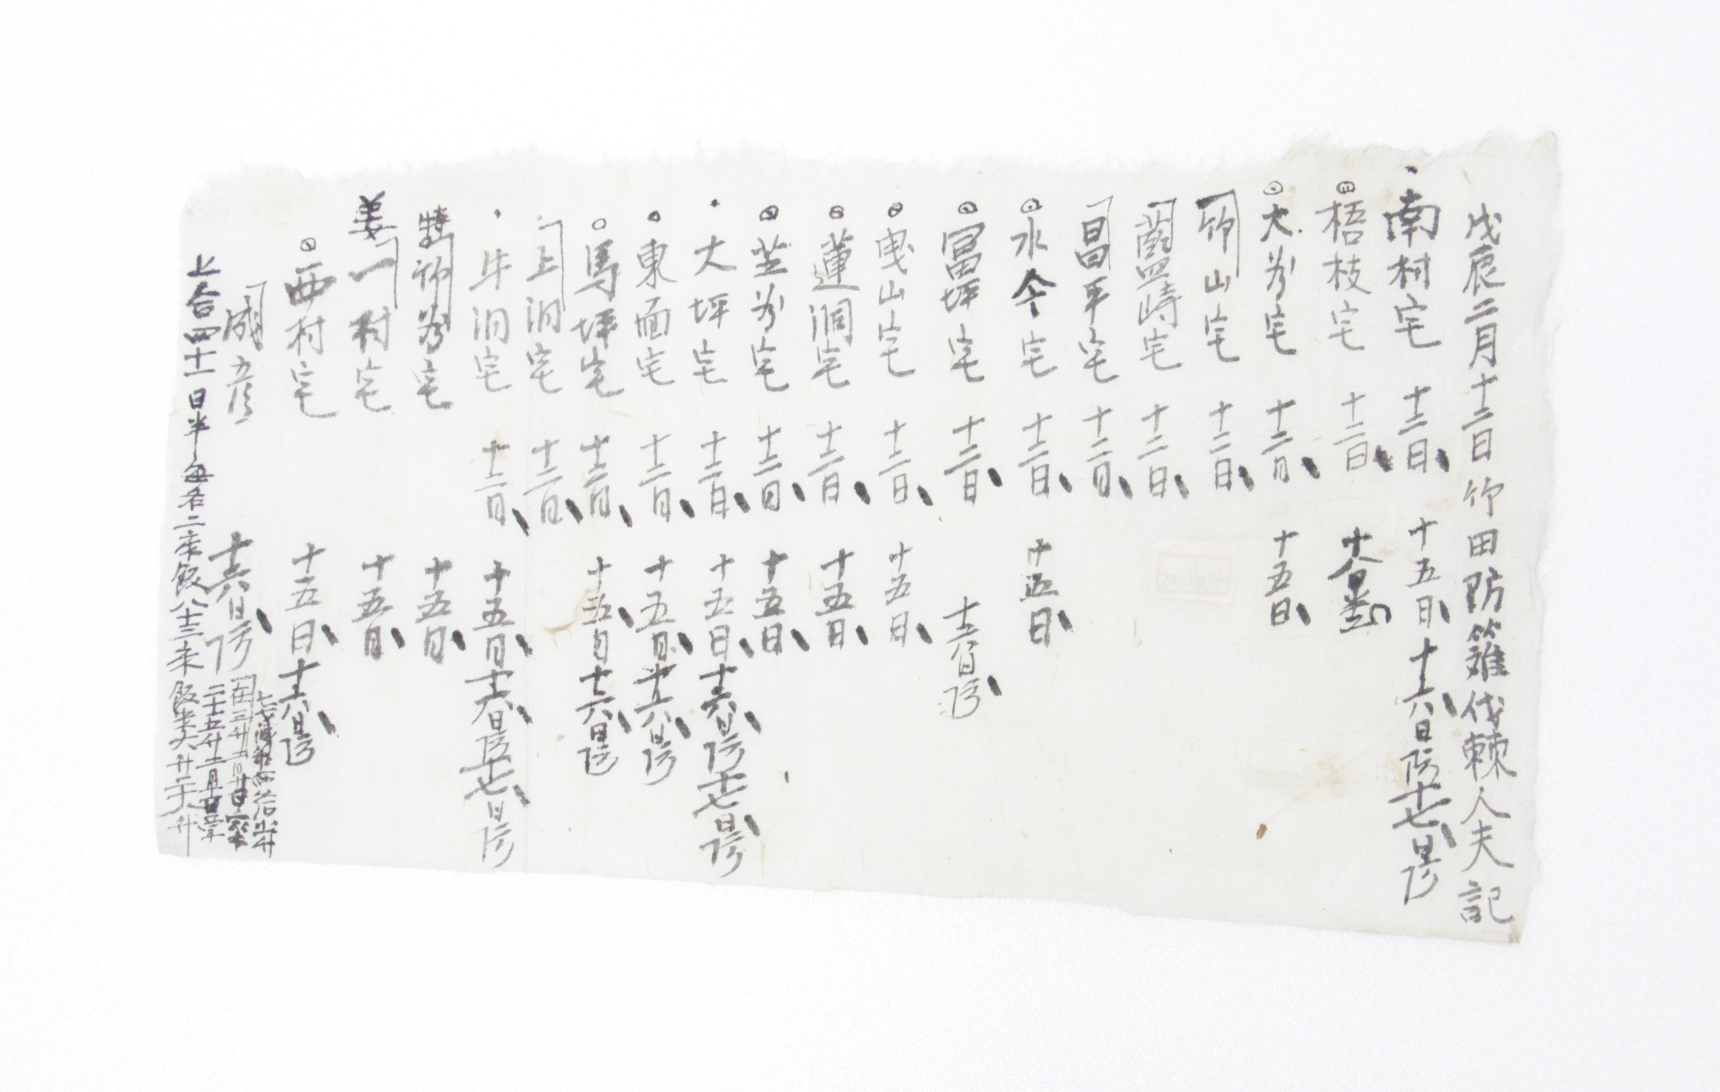 戊辰二月十二日竹田防籬伐棘人夫記
南村宅 十二日 十五日 十六日防 十七日防
梧枝宅 十二日
大谷宅 十二日 十五日
竹山宅 十二日
藍峙宅 十二日
昌平宅 十二日
水令宅 十二日 十五日
富坪宅 十二日 十六日防
曳山宅 十二日 十五日
蓮洞宅 十二日 十五日
芝谷宅 十二日 十五日
大坪宅 十二日 十五日 十六日防 十七日防
東面宅 十二日 十五日 十六日防
馬坪宅 十二日 十五日 十六日防
上洞宅 十二日
牛洞宅 十二日 十五日 十六日防 十七日防
竹谷宅 十五日
姜一村宅 十五日
西村宅 十五日 十六日防
成彦 十六日防
上合四十一日半每名二床飯八十三床飯米六升